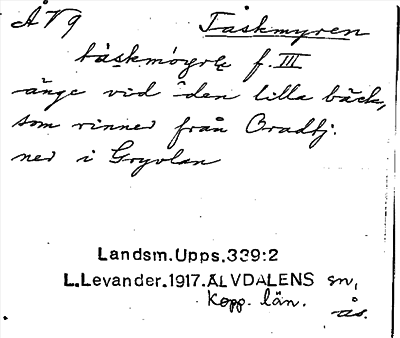 ÅV9 Fåskmyren
f. III
änge vid den lilla bäck,
som rinner från Bradtj.
ner i Gryvlan
Landsm.Upps.339:2
L.Levander.1917.ÄLVDALENS sn,
Kopp. län.
ås.